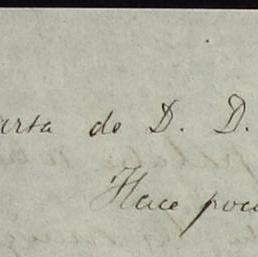 arta de D. D.
Hace poco